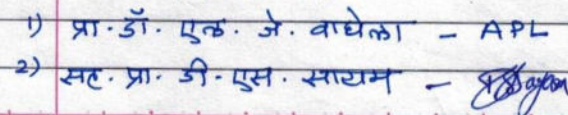 1) प्रा. डॉ. एल. जे. वाघेला - APL
2) सह. प्रा. डी. एस. सायाम -